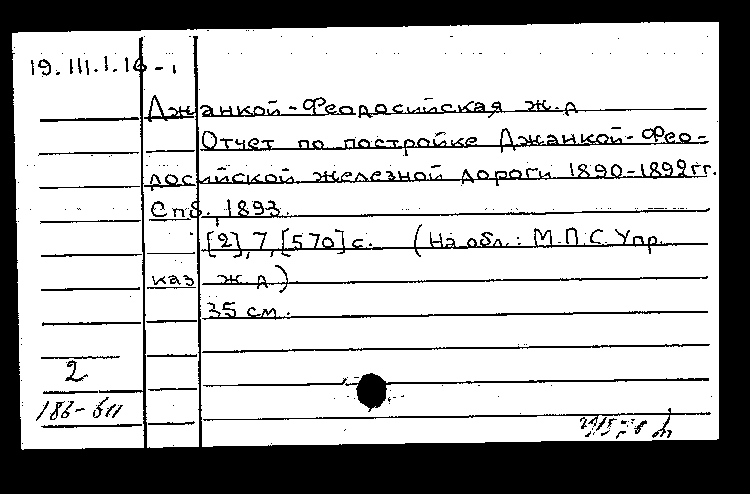 19.III.1.16-1
Джанкой-Феодосийская ж.д
Отчет по постройке Джанкой-Фео-
досийской железной дороги 1890-1892гг.
Спб., 1893.
[2], 7, [570] с. (На обл.: М.П.С. Упр.
каз ж.д)
35 см.
2